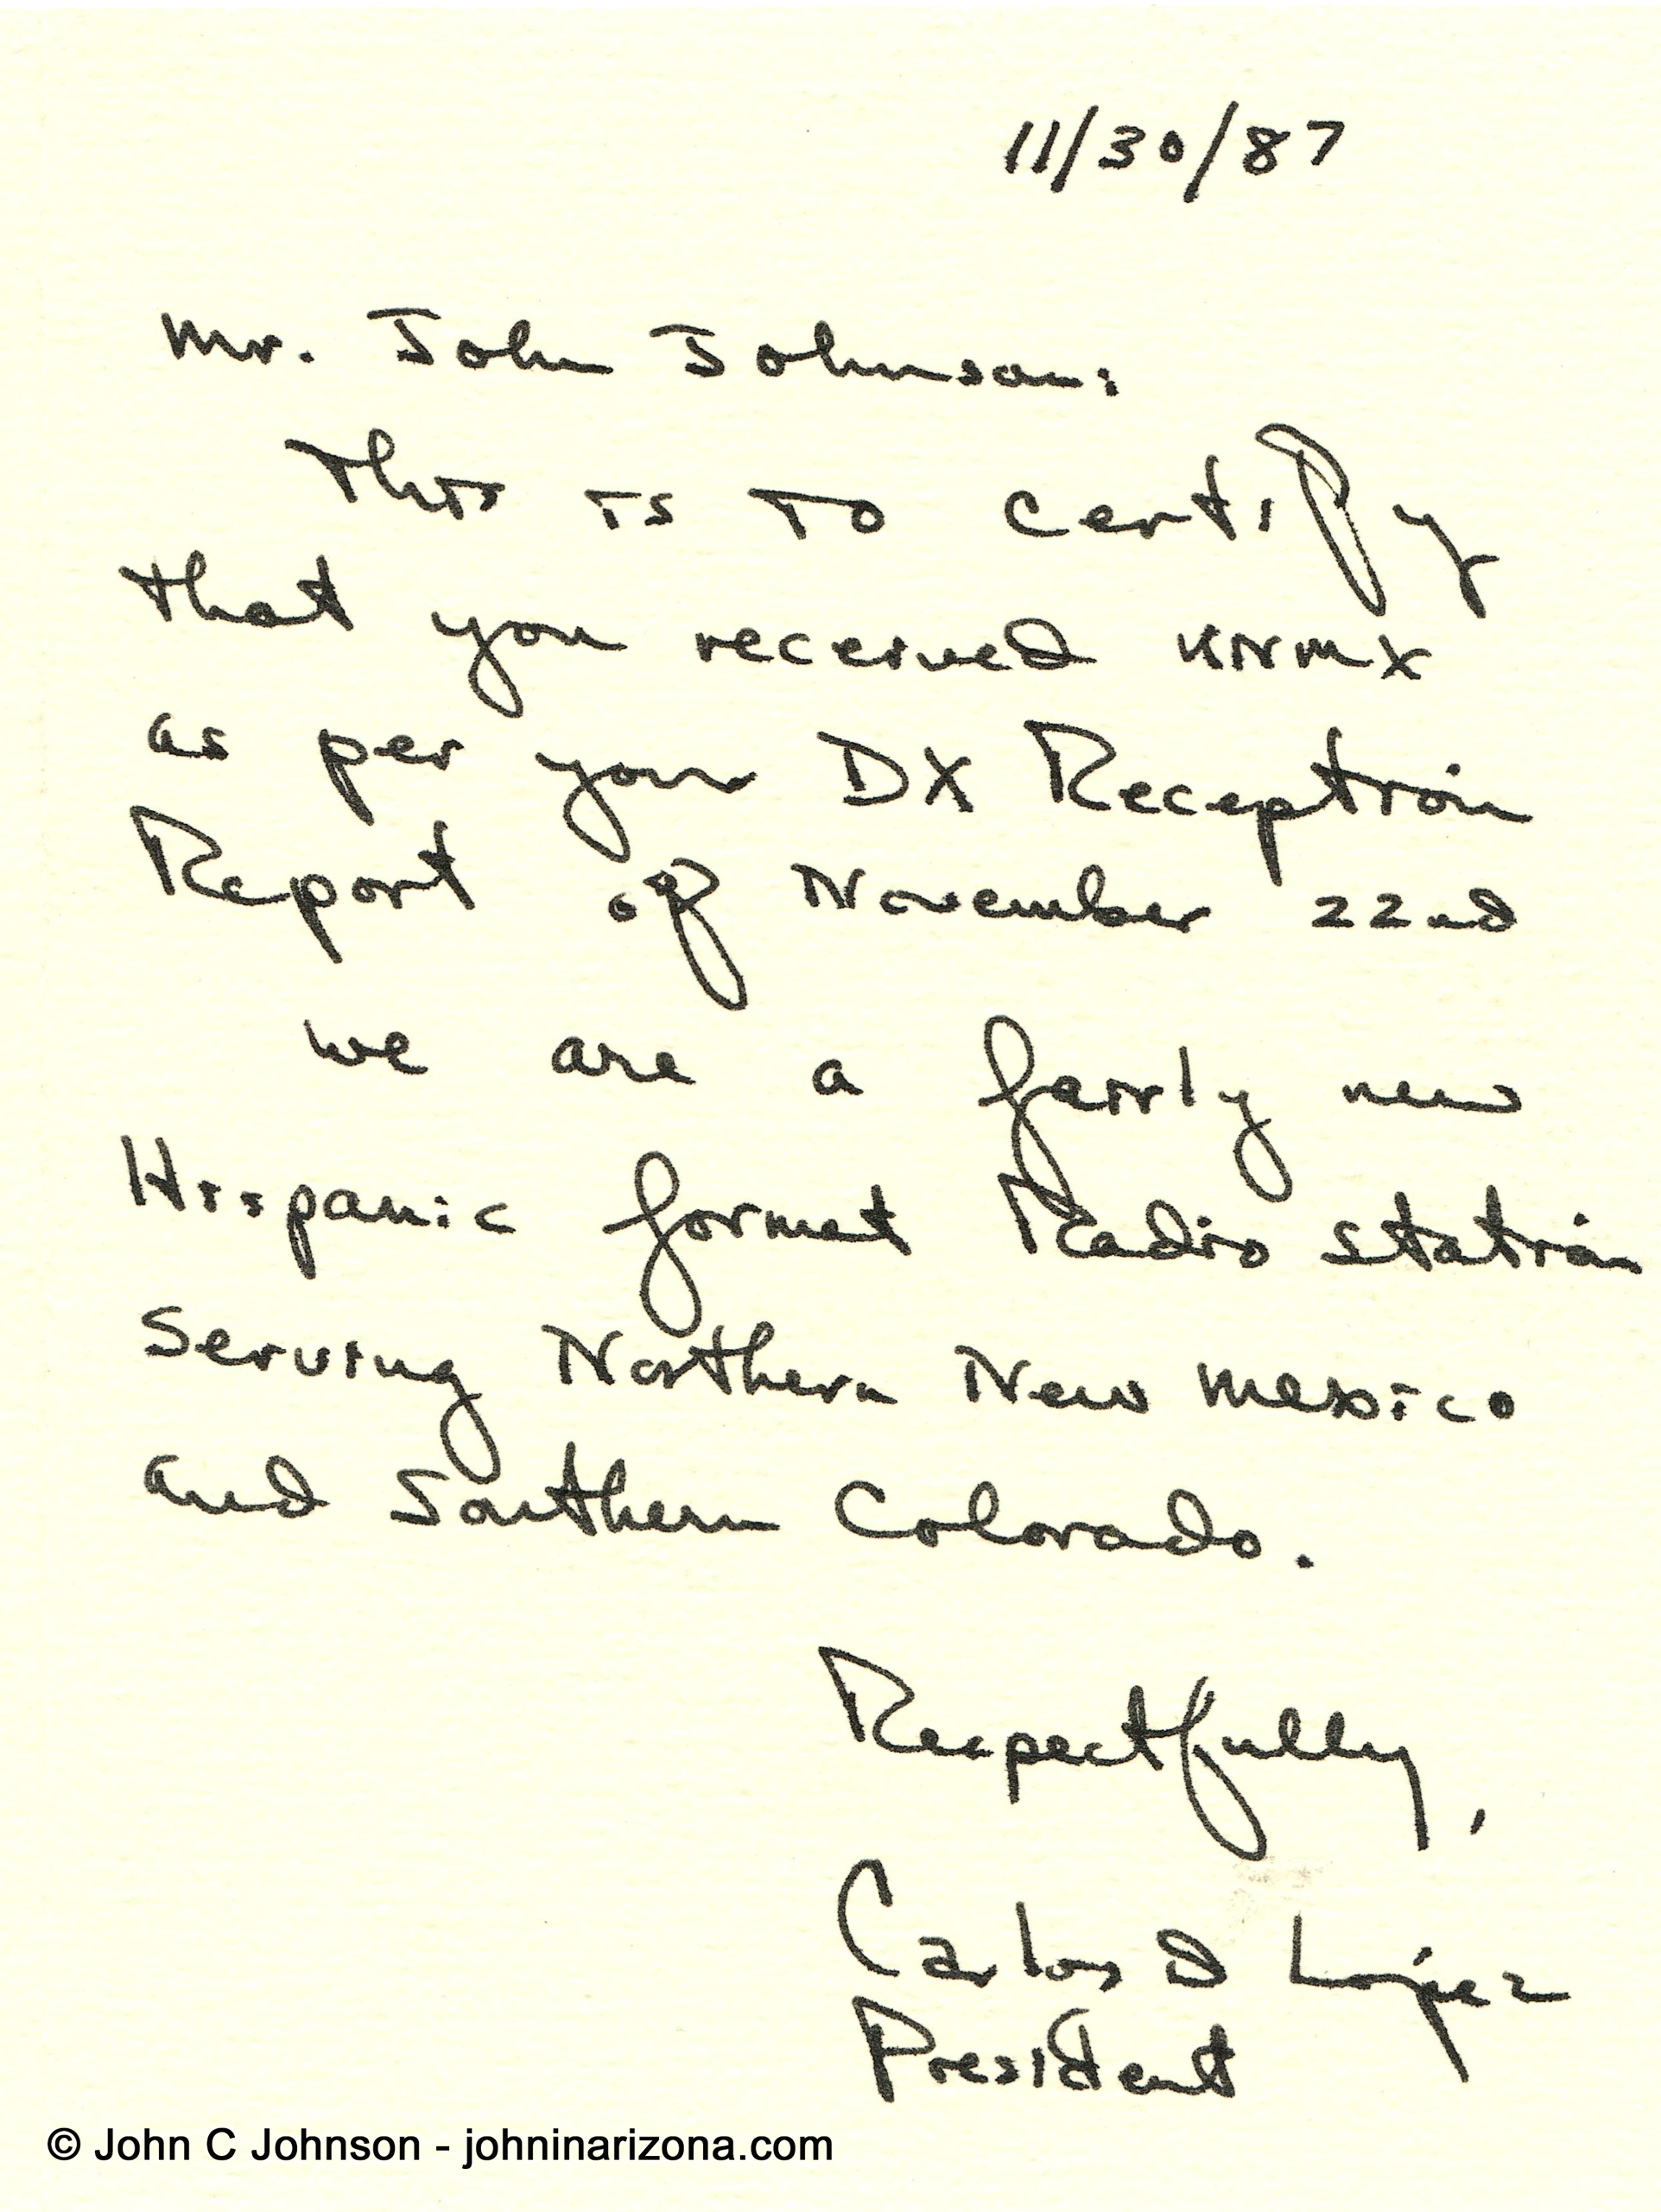 11/30/87
Mr. John Johnson:
This is to certify
that you received KNMX
as per your DX Reception
Report of November 22nd
We are a fairly new
Hispanic format Radio station
Serving Northern New Mexico
and Southern Colorado.
Respectfully,
Carlos D López
President
© John C Johnson - johninarizona.com